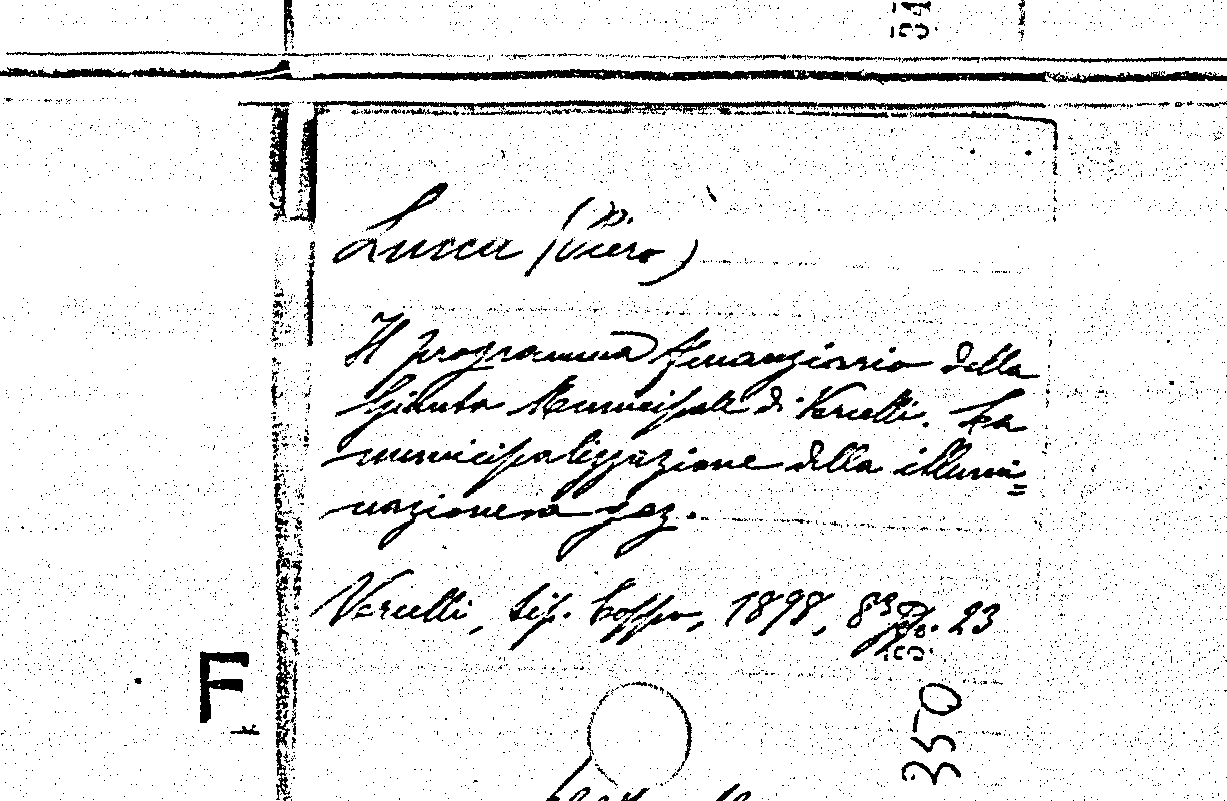 34
Lucca (Piero)
D.
Il programma finanziario della
Giunta Municipale di Vercelli. La
municipalizzazione della illumi=
nazione a gaz.
Vercelli, tip. Coppo, 1898, 8º, pp. 23
F
350